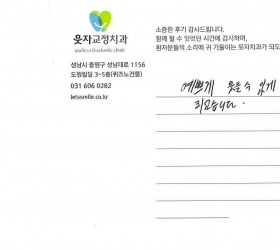 웃자교정치과
smile orthodontic clinic
성남시 중원구 성남대로 1156
도원빌딩 3~5층(퀴즈노건물)
031 606 0282
letssmile.co.kr
소중한 후기 감사드립니다.
함께 할 수 있었던 시간에 감사하며,
환자분들의 소리에 귀 기울이는 웃자치과가 되도
예쁘게 웃을 수 있게
되었습니다.